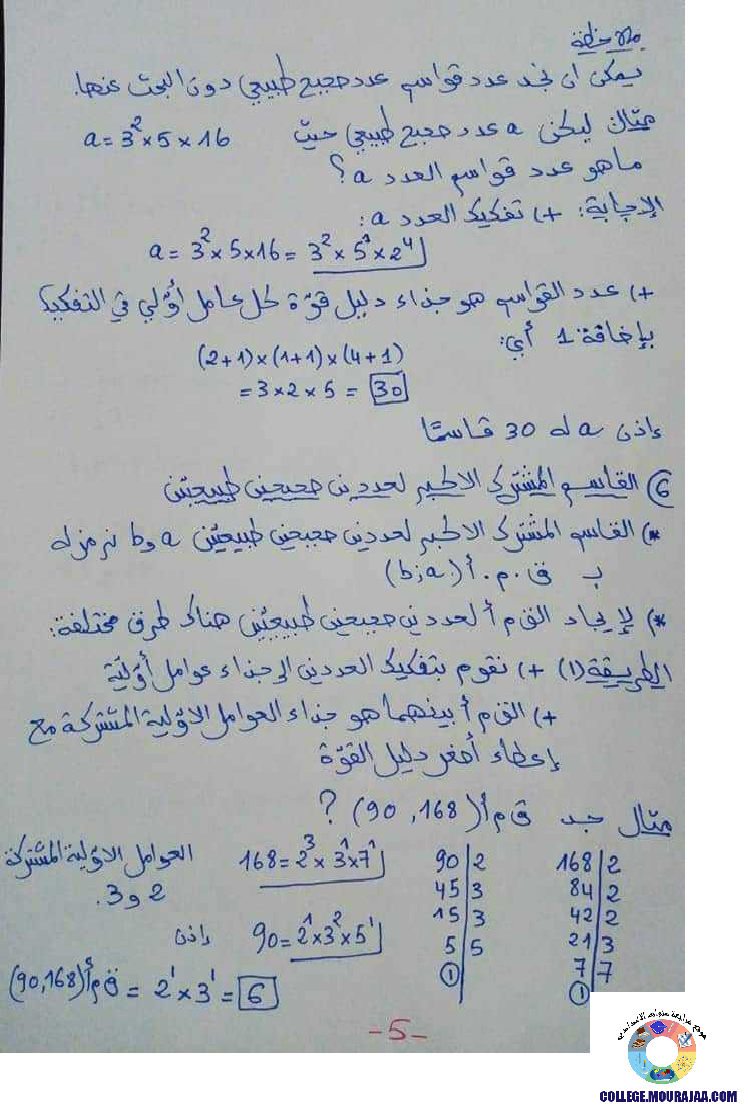 ملاحظة
يمكن ان نجد عدد قواسم عدد صحيح طبيعي دون البحث عنها.
مثال ليكن a عدد صحيح طبيعي حيث a = 3² × 5 × 16
ما هو عدد قواسم العدد a؟
الإجابة: +) تفكيك العدد a:
a = 3² × 5 × 16 = 3² × 5¹ × 2⁴
+) عدد القواسم هو جذاء دليل قوّة كل عامل أوّلي في التفكيك
بإضافة 1 أي:
(2+1) × (1+1) × (4+1)
= 3 × 2 × 5 = 30
إذن a له 30 قاسمًا
6) القاسم المشترك الاكبر لعددين صحيحين طبيعيين
*) القاسم المشترك الاكبر لعددين صحيحين طبيعيين a و b نرمز له
بـ ق.م.أ (b؛a)
*) لإيجاد الق م أ لعددين صحيحين طبيعيين هناك طرق مختلفة:
الطريقة (1) +) نقوم بتفكيك العددين الى جذاء عوامل أوّليّة
+) الق م أ بينهما هو جذاء العوامل الاوّلية المشتركة مع
إعطاء أصغر دليل القوّة
مثال جد ق م أ (90, 168) ?
168 | 2
84 | 2
42 | 2
21 | 3
7 | 7
1
90 | 2
45 | 3
15 | 3
5 | 5
1
168 = 2³ × 3¹ × 7¹
90 = 2¹ × 3² × 5¹
العوامل الاوّلية المشتركة
2 و 3.
إذن
ق م أ (90,168) = 2¹ × 3¹ = 6
-5-
موقع مراجعة
COLLEGE.MOURAJAA.COM